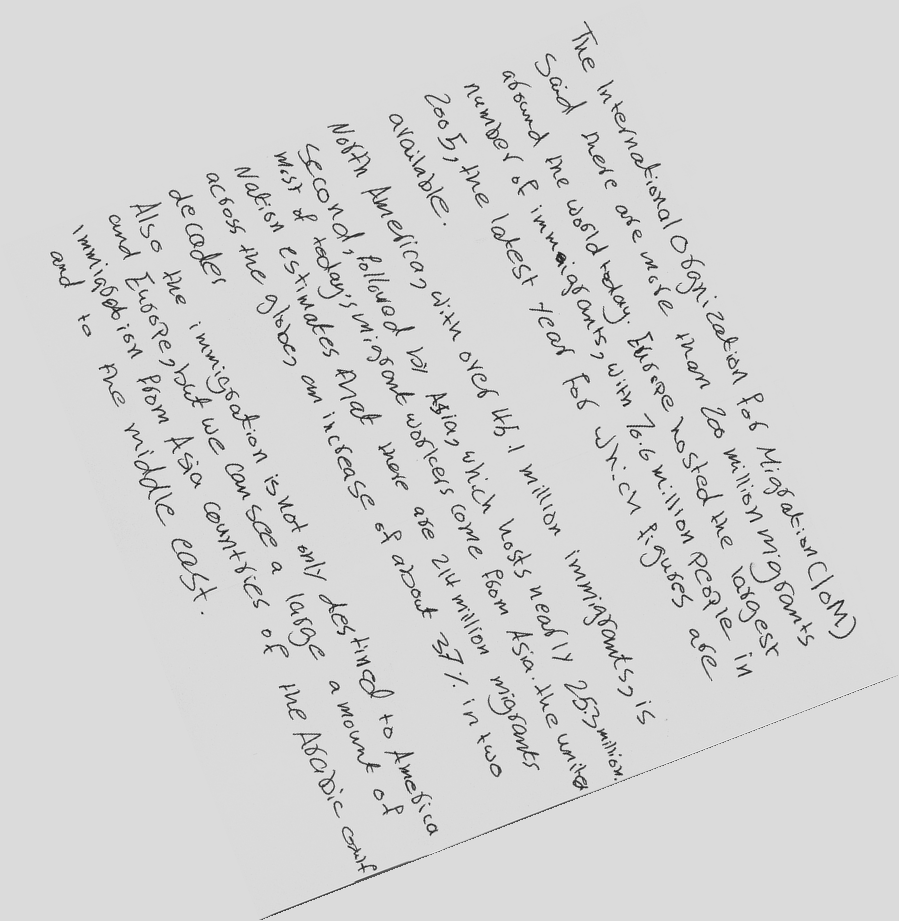 The International Organization for Migration (IOM)
Said there are more than 200 million migrants
around the world today. Europe hosted the largest
number of immigrants, with 70.6 million people in
2005, the latest year for which figures are
available.
North America, with over 45.1 million immigrants, is
Second, followed by Asia, which hosts nearly 25.3 million.
most of today's migrant workers come from Asia. the united
Nation estimates that there are 214 million migrants
across the globe, an increase of about 37% in two
decades
Also the immigration is not only destined to America
and Europe, but we can see a large amount of
immigration from Asia countries of the Arabic Gulf
and to the middle east.